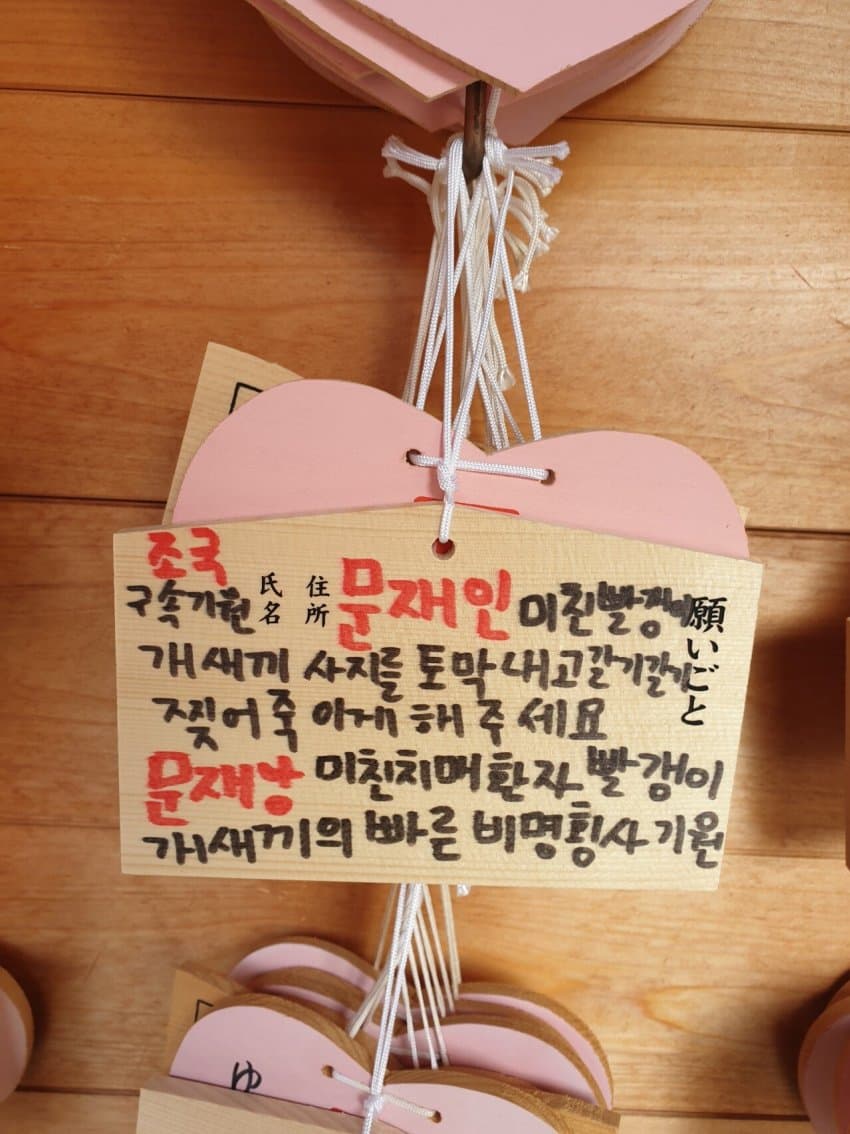 조국
구속기원
氏名
住所
願いごと
문재인 미친빨갱이
개새끼 사지를 토막내고갈기갈기
찢어죽이게 해주세요
문재앙 미친치매환자 빨갱이
개새끼의 빠른 비명횡사기원
ゆ